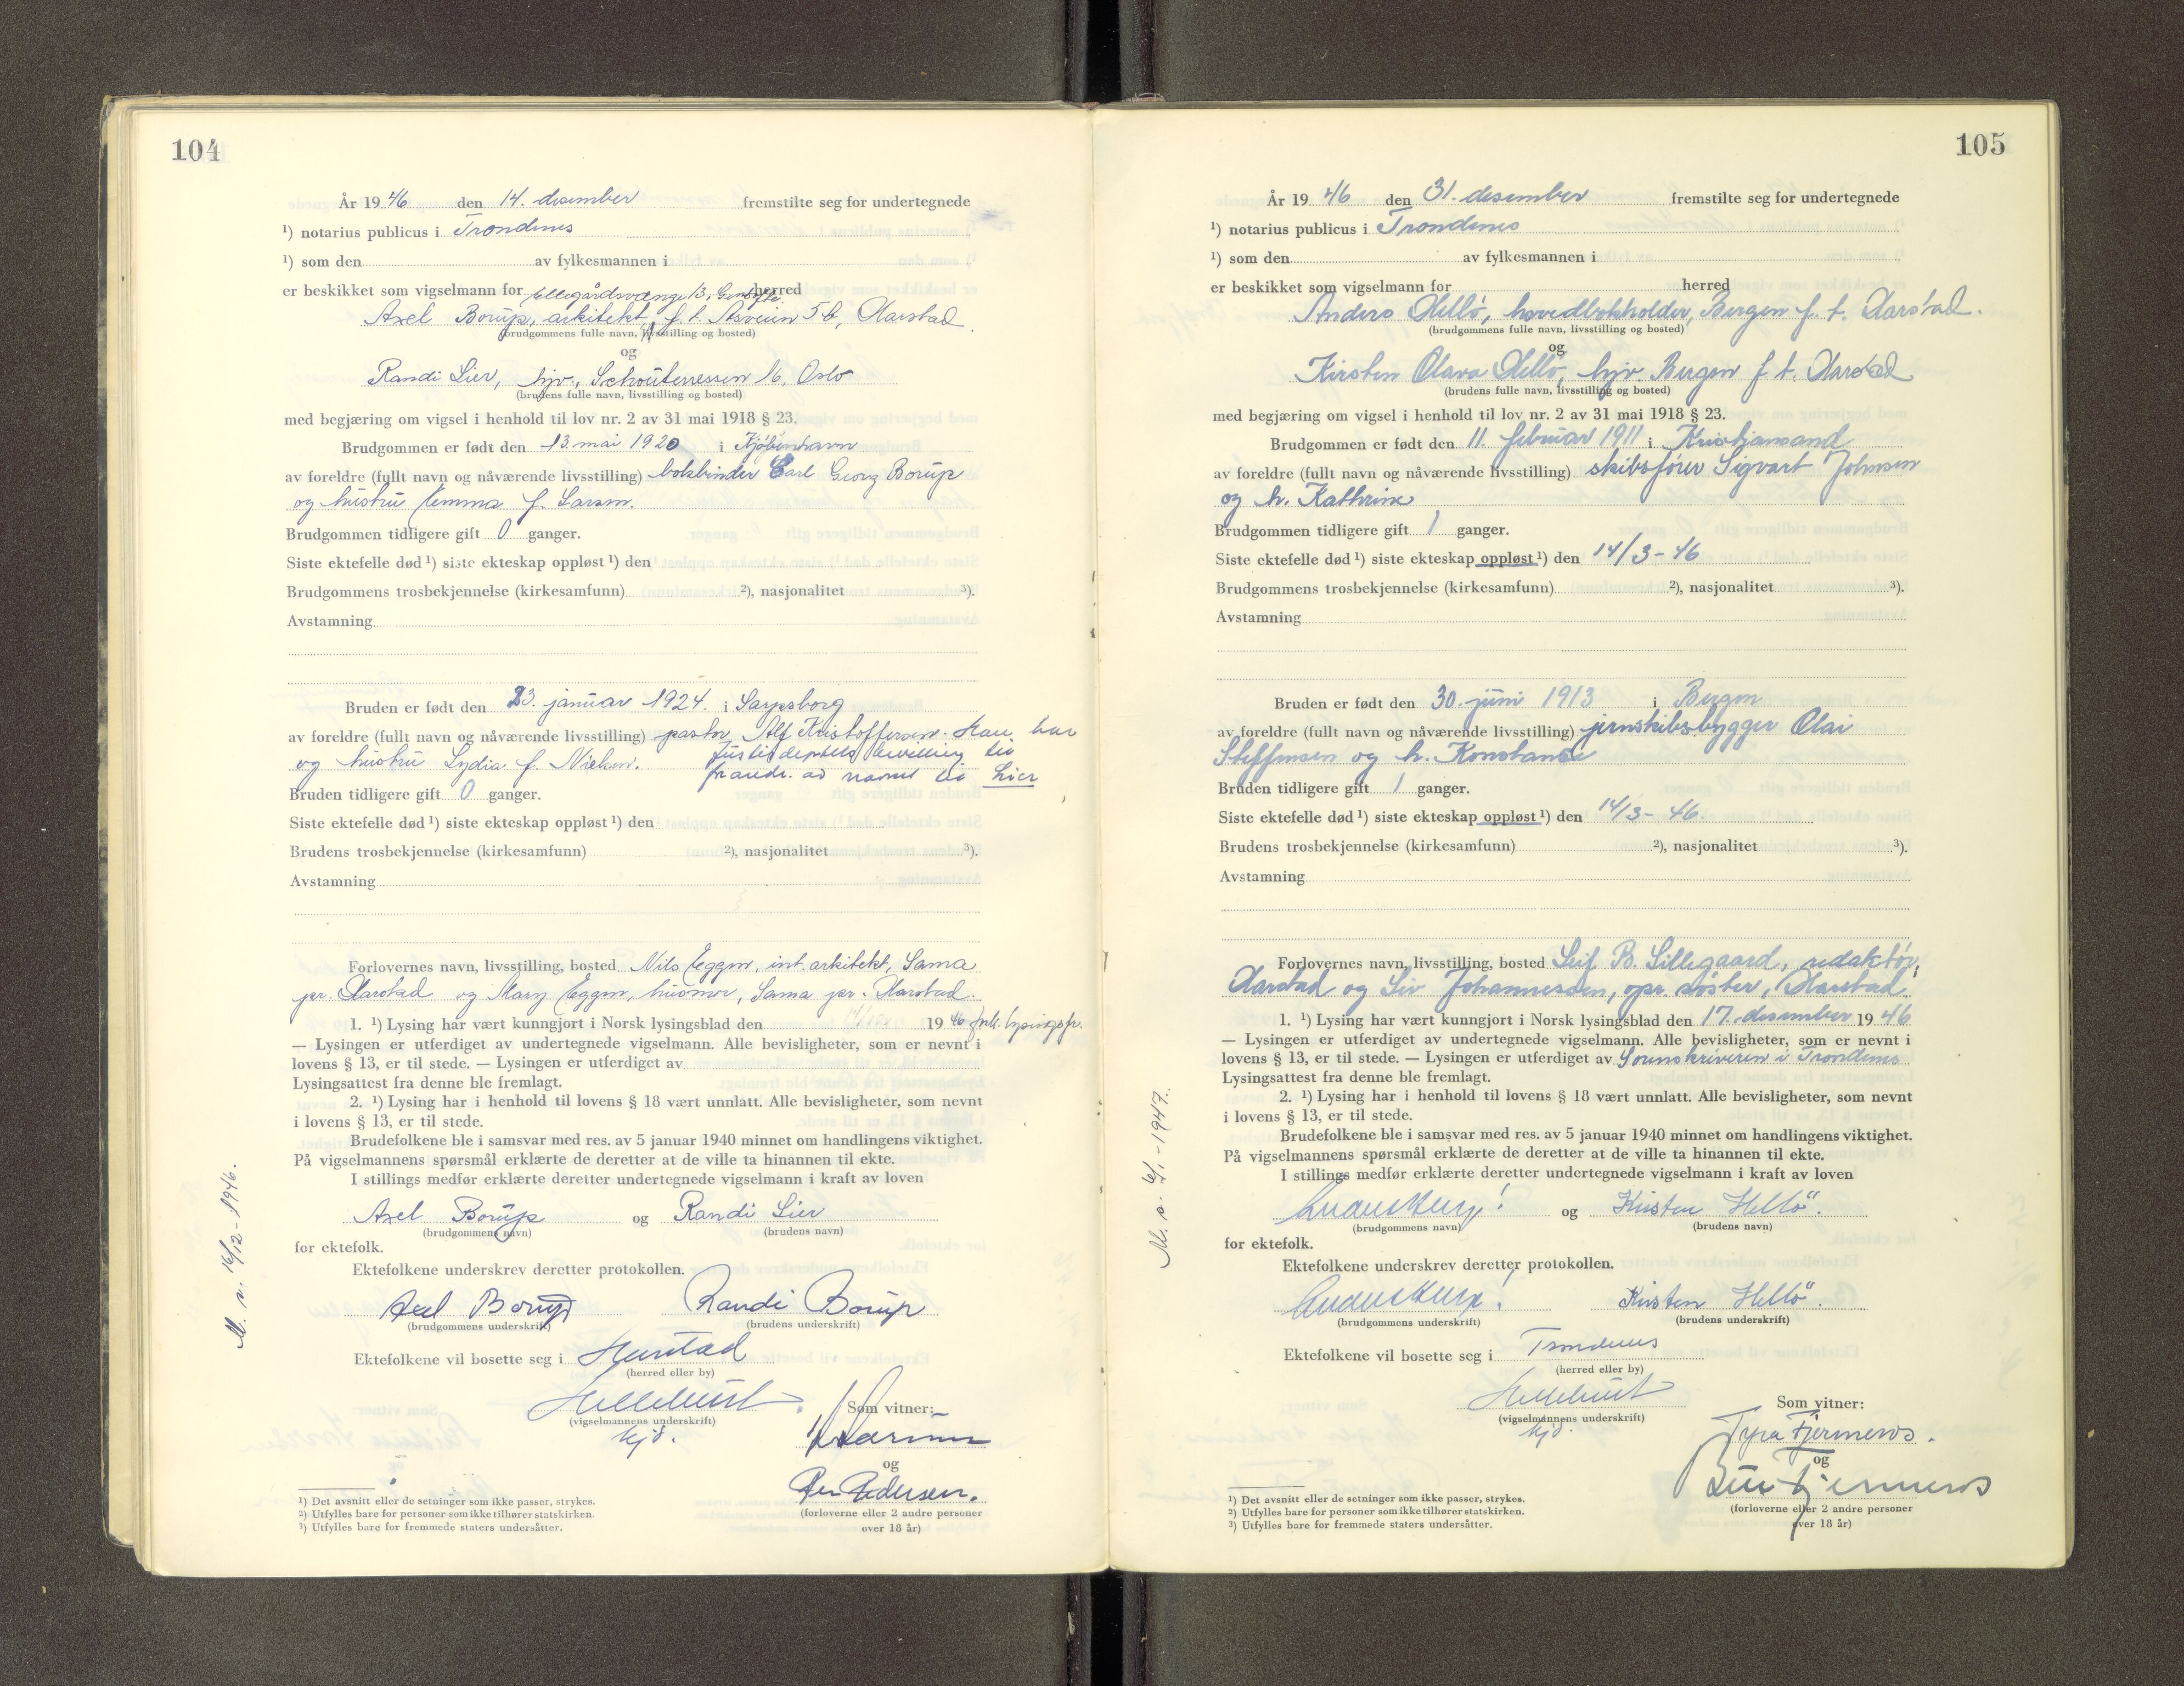 104
År 1946 den 14. desember fremstilte seg for undertegnede
¹) notarius publicus i Trondenes
¹) som den av fylkesmannen i
er beskikket som vigselmann for Ellegårdsvænge 13, Gentofte. herred
Axel Borup, arkitekt, f. t. Åsveien 5b, Harstad
(brudgommens fulle navn, livsstilling og bosted)
og
Randi Lier, hjv., Schouterrassen 16, Oslo
(brudens fulle navn, livsstilling og bosted)
med begjæring om vigsel i henhold til lov nr. 2 av 31 mai 1918 § 23.
Brudgommen er født den 13. mai 1920 i Kjøbenhavn
av foreldre (fullt navn og nåværende livsstilling) bokbinder Carl Georg Borup
og hustru Emma f. Larsen.
Brudgommen tidligere gift 0 ganger.
Siste ektefelle død ¹) siste ekteskap oppløst ¹) den
Brudgommens trosbekjennelse (kirkesamfunn) ²), nasjonalitet ³).
Avstamning
Bruden er født den 23. januar 1924. i Sarpsborg
av foreldre (fullt navn og nåværende livsstilling) pastor Alf Kristoffersen. Han har
og hustru Lydia f. Nielsen. Justisdeptets bevilling til
forandr. av navnet til Lier
Bruden tidligere gift 0 ganger.
Siste ektefelle død ¹) siste ekteskap oppløst ¹) den
Brudens trosbekjennelse (kirkesamfunn) ²), nasjonalitet ³).
Avstamning
Forlovernes navn, livsstilling, bosted Nils Eggen, int. arkitekt, Sama
pr. Harstad og Mary Eggen, husmor, Sama pr. Harstad.
1. ¹) Lysing har vært kunngjort i Norsk lysingsblad den 1946 lysingspr.
— Lysingen er utferdiget av undertegnede vigselmann. Alle bevisligheter, som er nevnt i
lovens § 13, er til stede. — Lysingen er utferdiget av
Lysingsattest fra denne ble fremlagt.
2. ¹) Lysing har i henhold til lovens § 18 vært unnlatt. Alle bevisligheter, som nevnt
i lovens § 13, er til stede.
Brudefolkene ble i samsvar med res. av 5 januar 1940 minnet om handlingens viktighet.
På vigselmannens spørsmål erklærte de deretter at de ville ta hinannen til ekte.
I stillings medfør erklærte deretter undertegnede vigselmann i kraft av loven
Axel Borup og Randi Lier
(brudgommens navn) (brudens navn)
for ektefolk.
Ektefolkene underskrev deretter protokollen.
Axel Borup Randi Borup
(brudgommens underskrift) (brudens underskrift)
Ektefolkene vil bosette seg i Harstad
(herred eller by)
Som vitner:
(vigselmannens underskrift)
kjd.
og
Per Pedersen.
(forloverne eller 2 andre personer
over 18 år)
¹) Det avsnitt eller de setninger som ikke passer, strykes.
²) Utfylles bare for personer som ikke tilhører statskirken.
³) Utfylles bare for fremmede staters undersåtter.
M. s. 16/12-1946.
105
År 1946 den 31. desember fremstilte seg for undertegnede
¹) notarius publicus i Trondenes
¹) som den av fylkesmannen i
er beskikket som vigselmann for herred
Anders Hellö, hovedbokholder, Bergen f. t. Harstad.
(brudgommens fulle navn, livsstilling og bosted)
og
Kirsten Olava Hellö, hjv. Bergen f. t. Harstad
(brudens fulle navn, livsstilling og bosted)
med begjæring om vigsel i henhold til lov nr. 2 av 31 mai 1918 § 23.
Brudgommen er født den 11. februar 1911 i Kristiansand
av foreldre (fullt navn og nåværende livsstilling) skibsfører Sigvart Johnsen
og h. Kathrine
Brudgommen tidligere gift 1 ganger.
Siste ektefelle død ¹) siste ekteskap oppløst ¹) den 14/3-46
Brudgommens trosbekjennelse (kirkesamfunn) ²), nasjonalitet ³).
Avstamning
Bruden er født den 30. juni 1913 i Bergen
av foreldre (fullt navn og nåværende livsstilling) jernskibsbygger Olai
Steffensen og h. Konstanse
Bruden tidligere gift 1 ganger.
Siste ektefelle død ¹) siste ekteskap oppløst ¹) den 14/3-46.
Brudens trosbekjennelse (kirkesamfunn) ²), nasjonalitet ³).
Avstamning
Forlovernes navn, livsstilling, bosted Leif B. Lillegaard, redaktør,
Harstad og Liv Johannessen, opr. søster, Harstad
1. ¹) Lysing har vært kunngjort i Norsk lysingsblad den 17. desember 1946
— Lysingen er utferdiget av undertegnede vigselmann. Alle bevisligheter, som er nevnt i
lovens § 13, er til stede. — Lysingen er utferdiget av Sorenskriveren i Trondenes
Lysingsattest fra denne ble fremlagt.
2. ¹) Lysing har i henhold til lovens § 18 vært unnlatt. Alle bevisligheter, som nevnt
i lovens § 13, er til stede.
Brudefolkene ble i samsvar med res. av 5 januar 1940 minnet om handlingens viktighet.
På vigselmannens spørsmål erklærte de deretter at de ville ta hinannen til ekte.
I stillings medfør erklærte deretter undertegnede vigselmann i kraft av loven
og Kirsten Hellö.
(brudgommens navn) (brudens navn)
for ektefolk.
Ektefolkene underskrev deretter protokollen.
Kirsten Hellö.
(brudgommens underskrift) (brudens underskrift)
Ektefolkene vil bosette seg i Trondenes
(herred eller by)
Som vitner:
(vigselmannens underskrift)
kjd.
Tyra Fjermeros.
og
Fjermeros
(forloverne eller 2 andre personer
over 18 år)
¹) Det avsnitt eller de setninger som ikke passer, strykes.
²) Utfylles bare for personer som ikke tilhører statskirken.
³) Utfylles bare for fremmede staters undersåtter.
M. s. 6/1-1947.